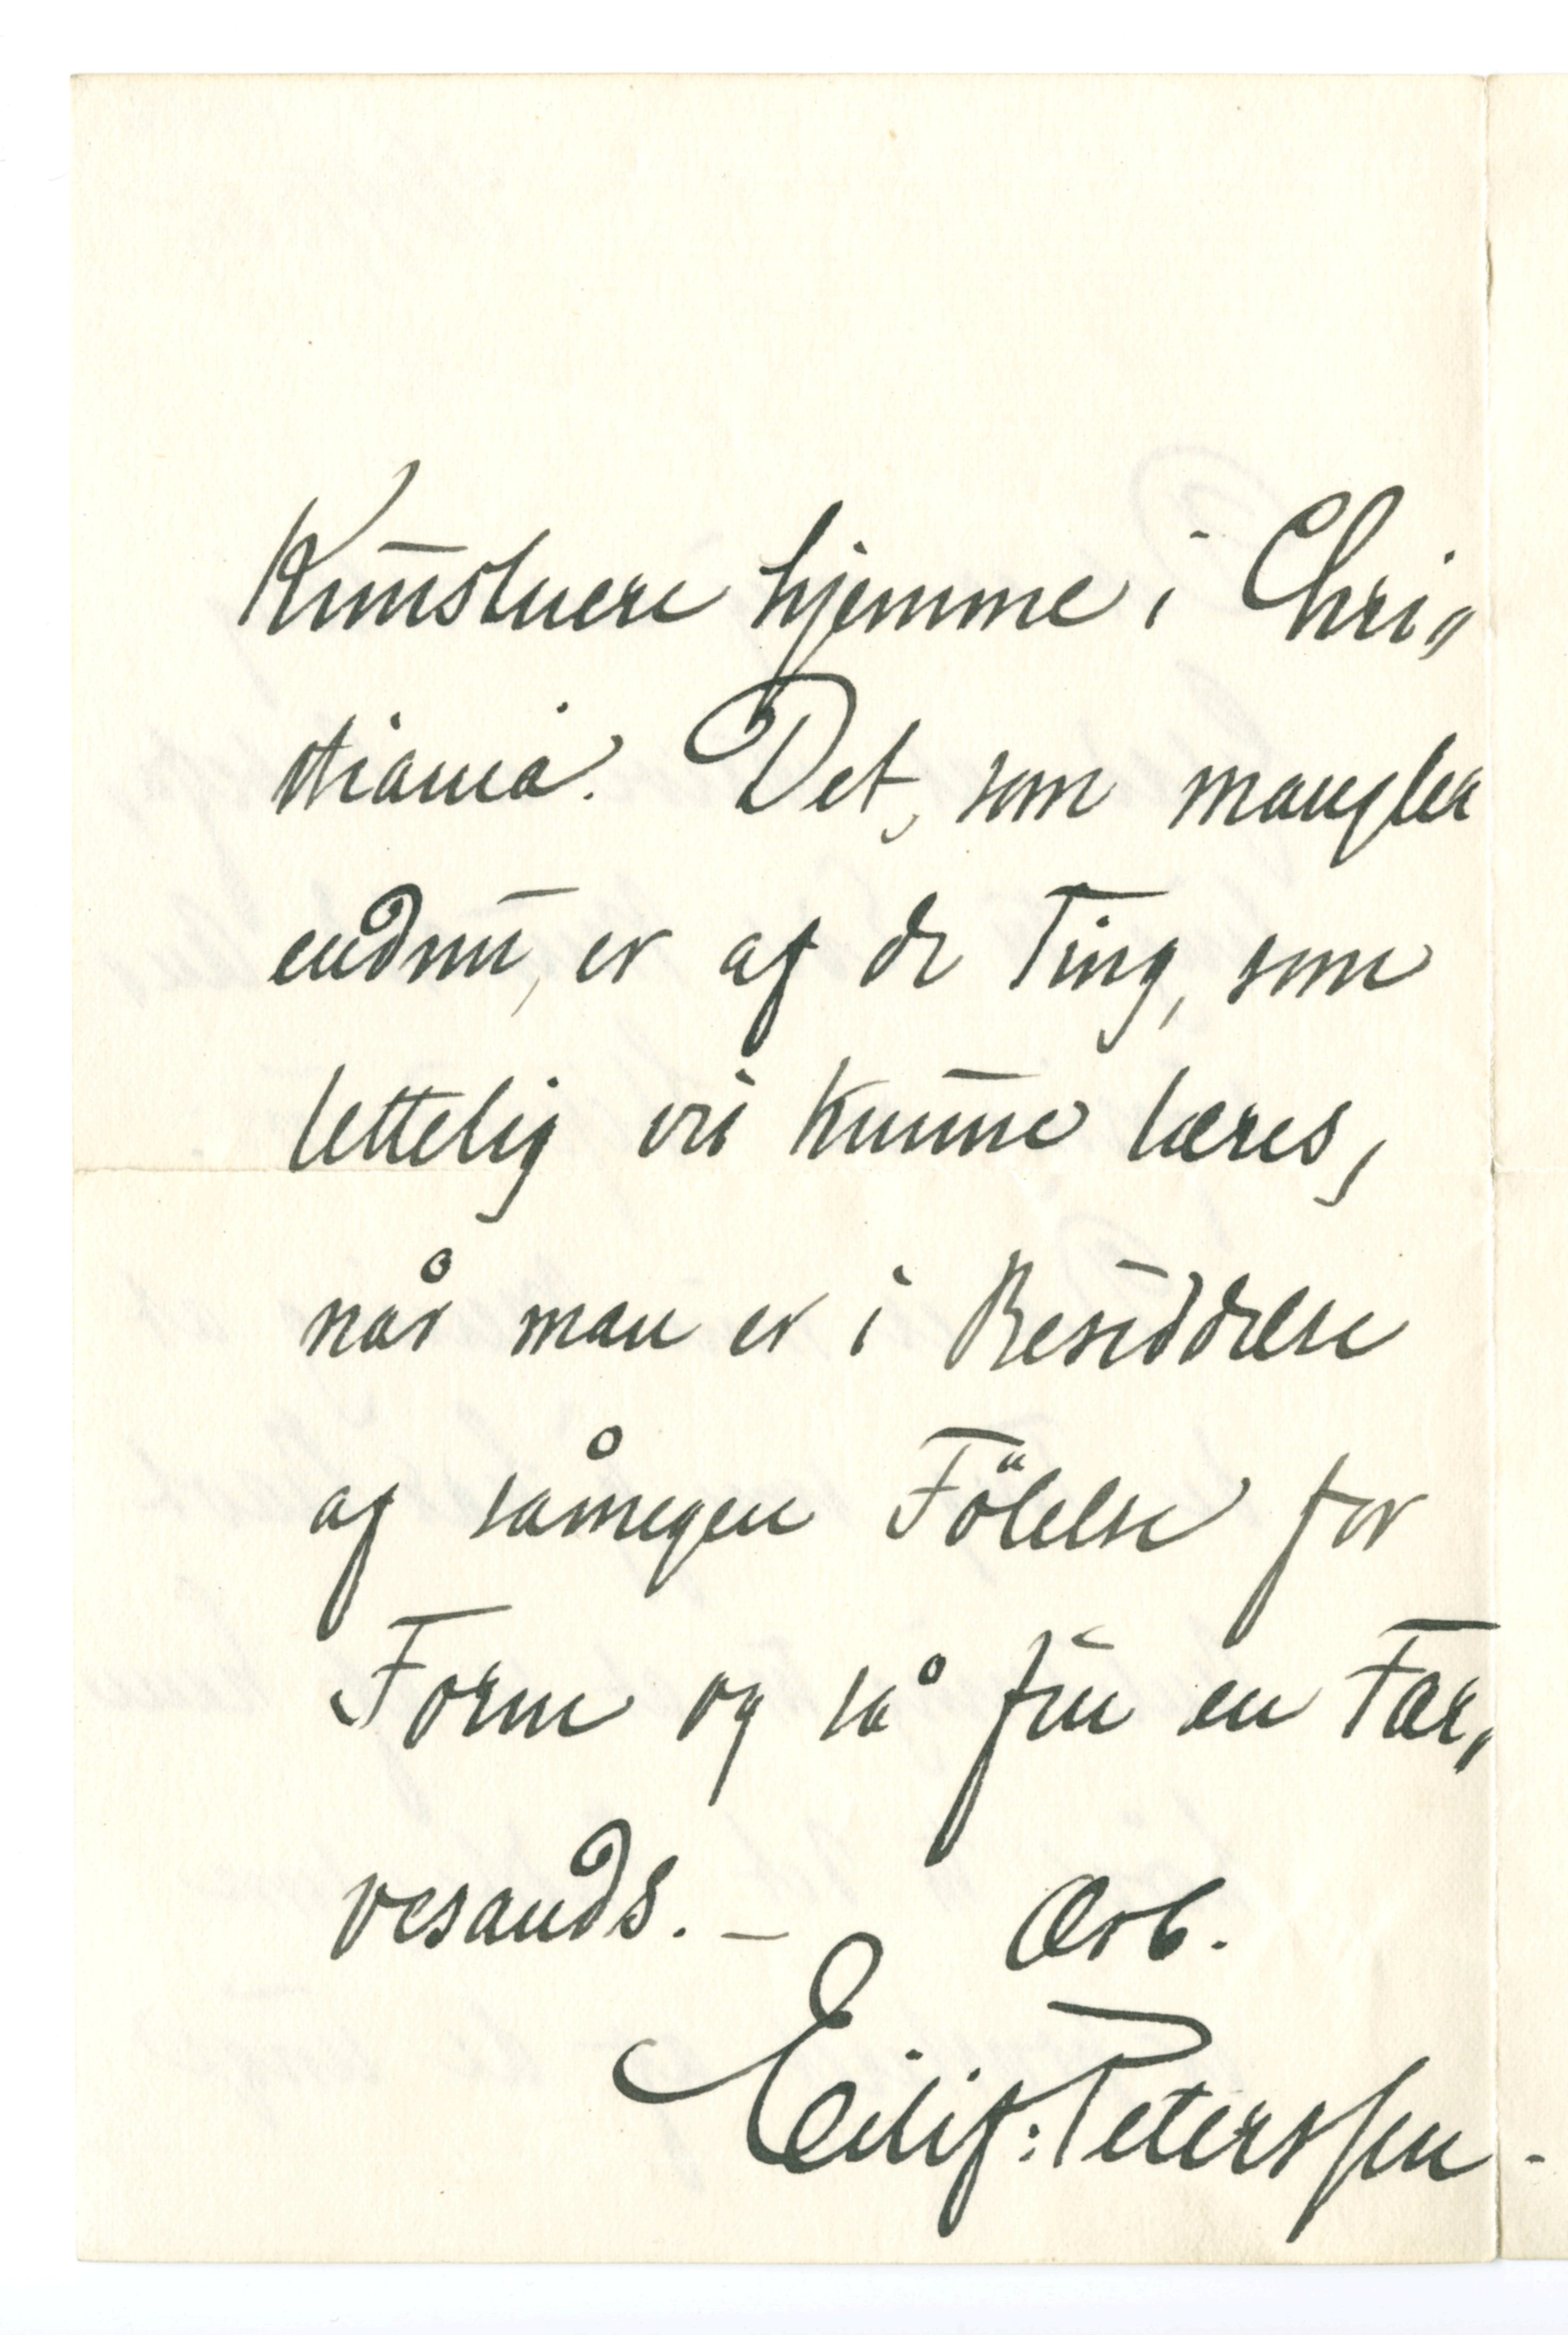 Kunstnere hjemme i Chri„
stiania. Det, som mangler
endnu, er af de Ting, som
lettelig vil kunne læres,
når man er i Besiddelse
af såmegen Fölelse for
Form og så fin en Far„
vesands. – Ærb.
Eilif: Peterssen -